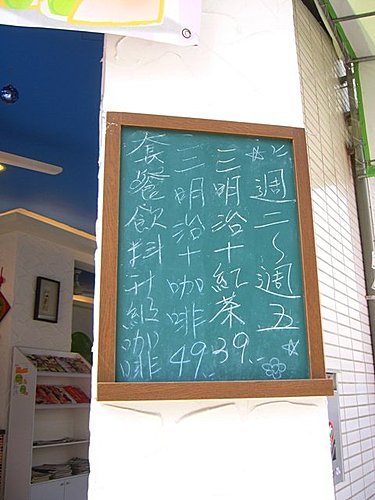 週二~週五
三明治+紅茶39.
三明治+咖啡49.
套餐飲料升級咖啡